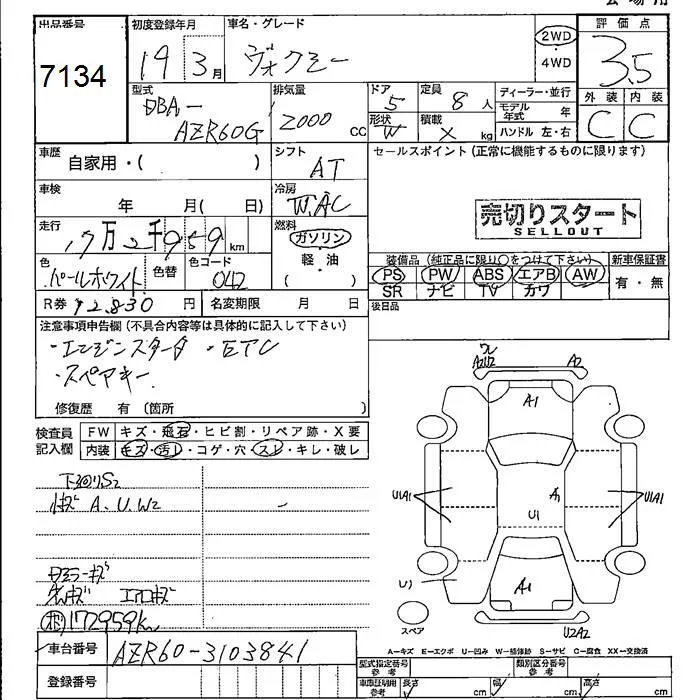 出品番号
7134
初度登録年月
19 3月
車名・グレード
ヴォクシー
2WD
4WD
評価点
3.5
外装 内装
C C
型式
DBA-
AZR60G
排気量
2000 CC
ドア
5
形状
W
定員
8人
積載
X kg
ディーラー・並行
モデル年式 年
ハンドル 左・右
車歴
自家用・( )
シフト
AT
セールスポイント(正常に機能するものに限ります)
売切りスタート
SELLOUT
車検
年 月( 日)
冷房
W.AC
走行
17万2千959km
燃料
ガソリン
軽・油
( )
色
パールホワイト
色替
色コード
042
装備品(純正品に限り〇をつけて下さい)
PS PW ABS エアB AW
SR ナビ TV カワ
新車保証書
有・無
R券 12,830円
名変期限 月 日
後日品
注意事項申告欄(不具合内容等は具体的に記入して下さい)
・エンジンスターター ・ETC
・スペアキー
修復歴 有(箇所 )
検査員記入欄
FW キズ・飛石・ヒビ割・リペア跡・X要
内装 キズ・汚レ・コゲ・穴・スレ・キレ・破レ
下廻りS2
A、U、W2
エアロキズ
172959km
車台番号
AZR60-3103841
登録番号
A2U2
A2
A1
U1A1
A1
U1A1
U1
A1
U1
U2A2
スペア
A-キズ E-エクボ U-凹み W-補修跡 S-サビ C-腐食 XX-交換済
型式指定番号
参考
類別区分番号
参考
車庫証明用
参考
長さ cm
幅 cm
高さ cm